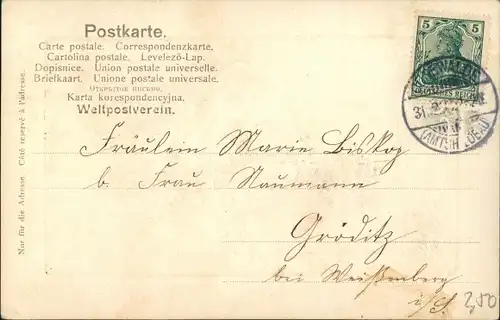 Postkarte.
Carte postale. Correspondenzkarte.
Cartolina postale. Levelező-Lap.
Dopisnice. Union postale universelle.
Briefkaart. Unione postale universale.
Открытое письмо.
Karta korespondencyjna.
Weltpostverein.
5 5
DEUTSCHES REICH
31.
(AMTSH. LÖBAU)
Fräulein Marie Biskop
b. Frau Naumann
Gröditz
bei Weißenberg
i/S.
2,50
Nur für die Adresse Côté réservé à l'adresse.